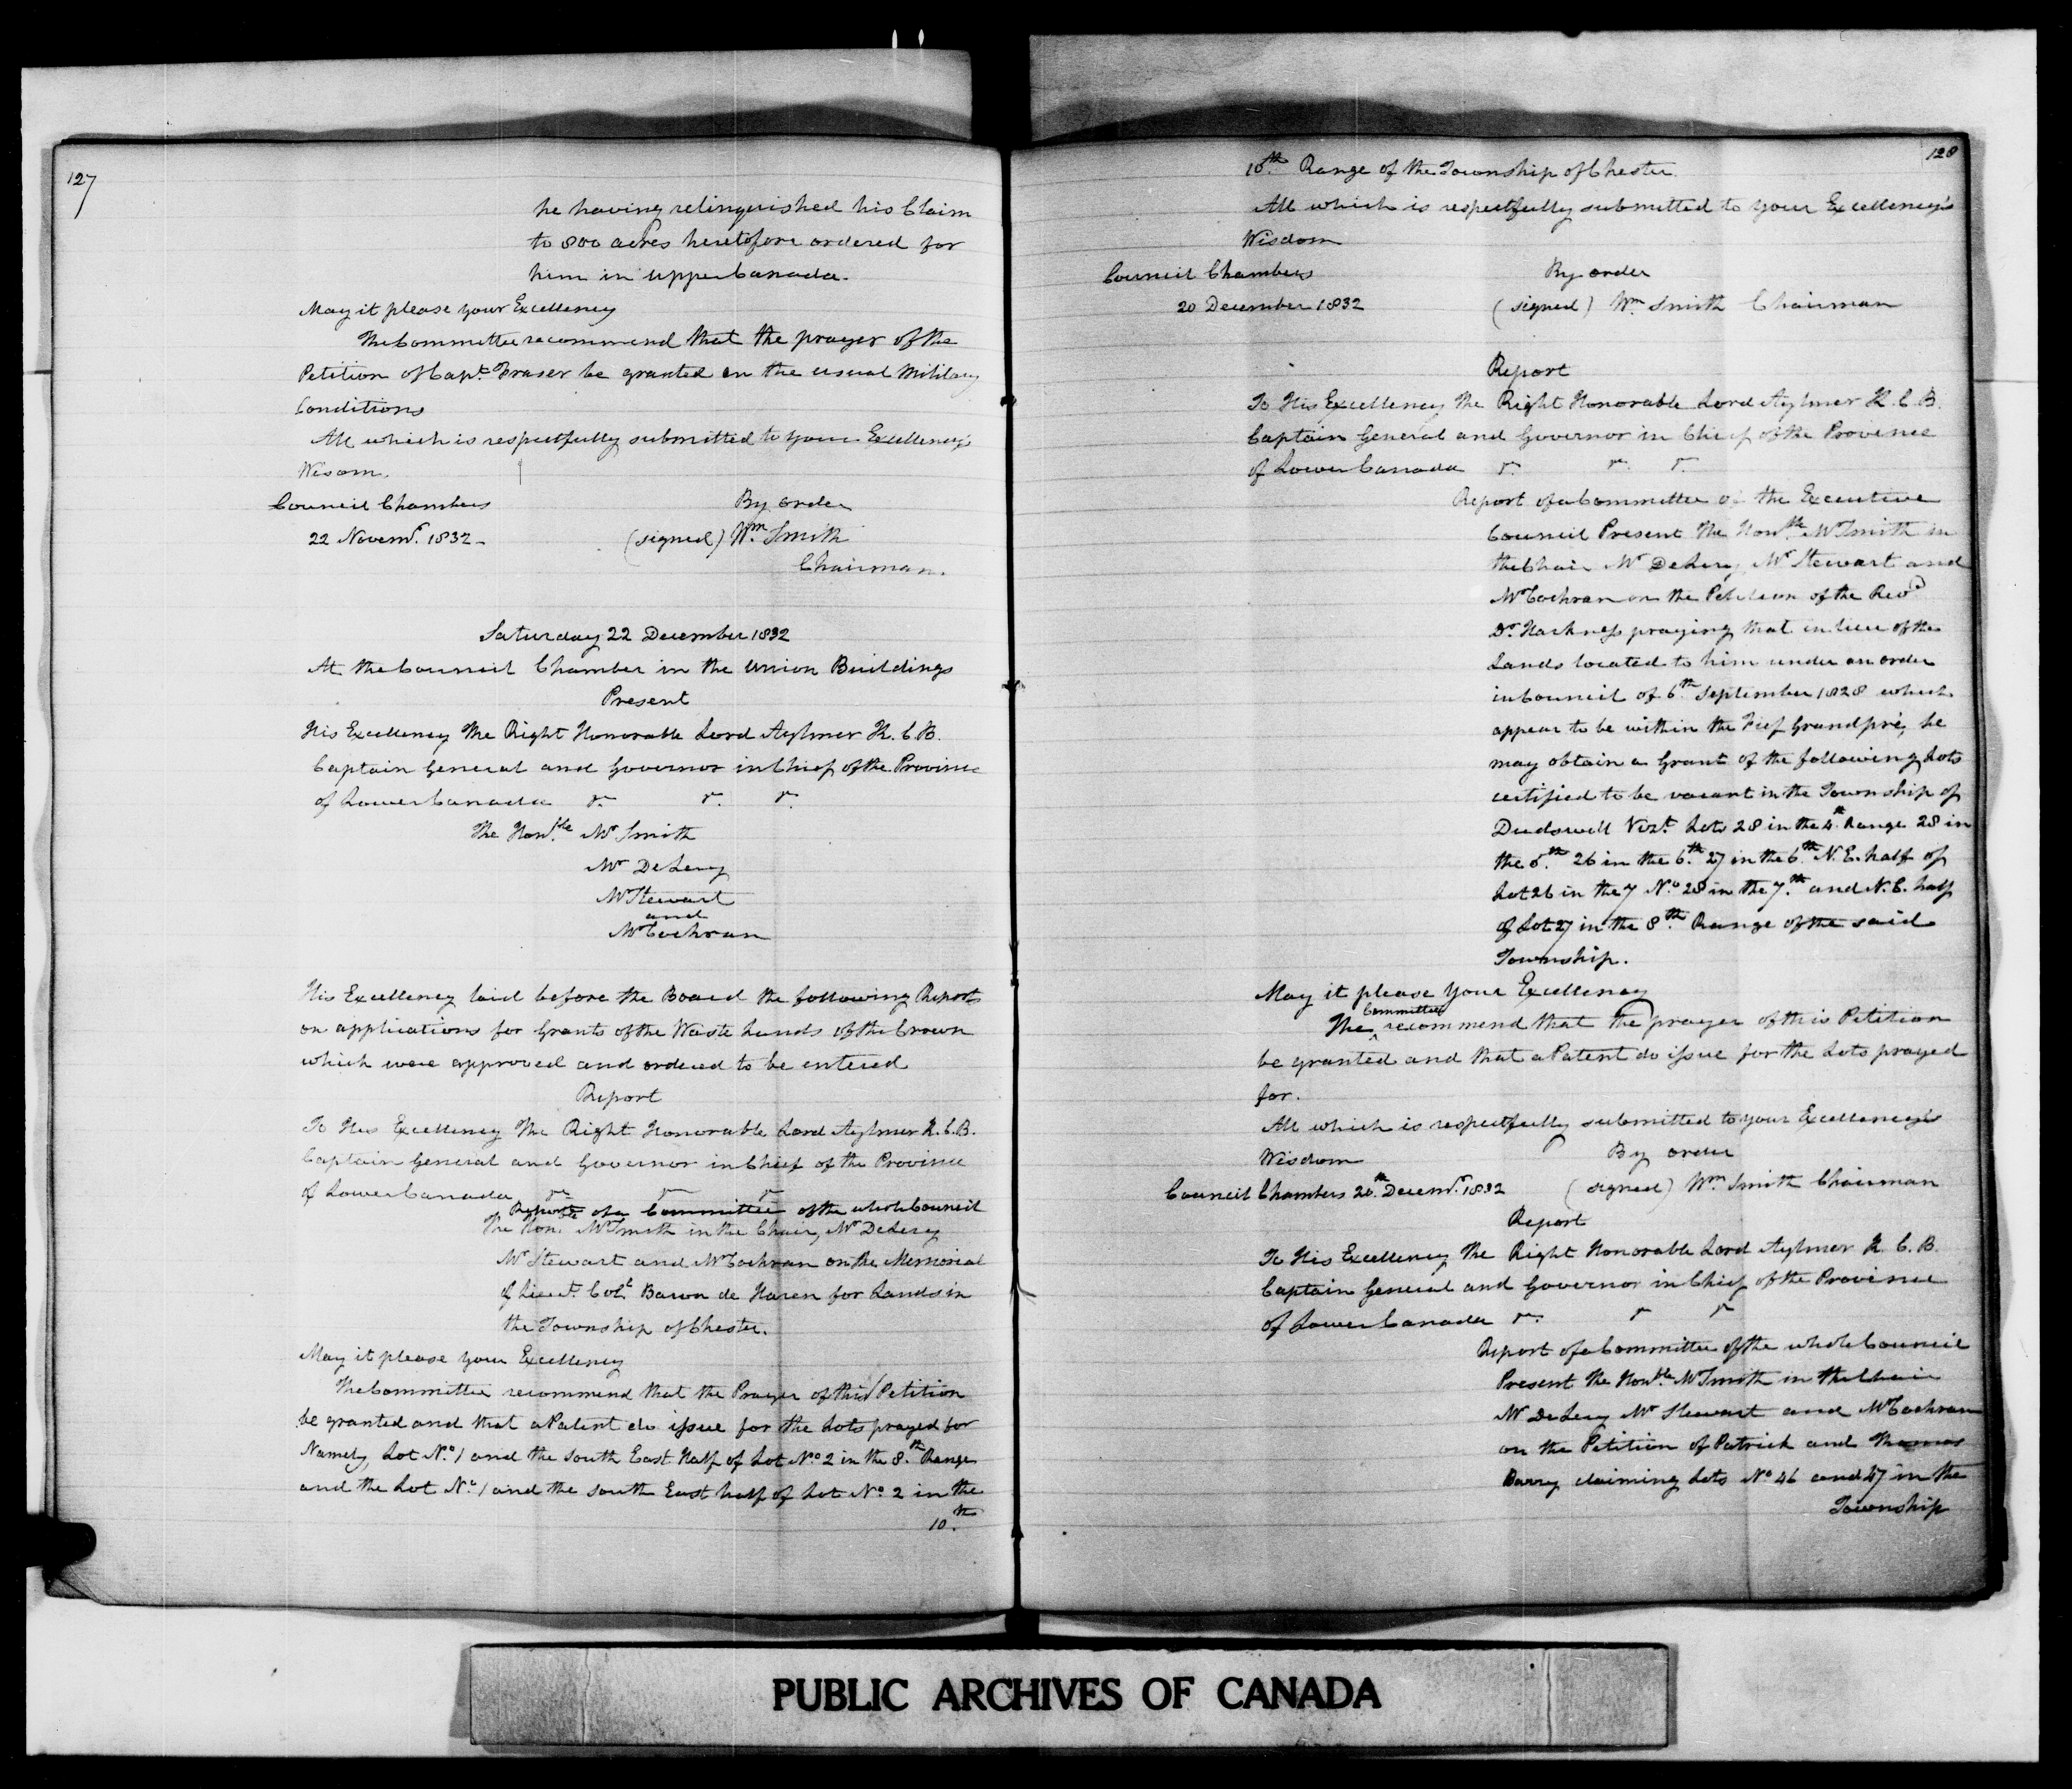 127
he having relinquished his Claim
to 800 acres heretofore ordered for
him in upper Canada.
May it please your Excellency
The Committee recommend that the prayer of the
Petition of Capt. Fraser be granted on the usual Military
Conditions
All which is respectfully submitted to your Excellency's
Wisom.
Council Chambers By order
22 Novemr. 1832 (signed) Wm. Smith
Chairman.
Saturday 22 December 1832
At the Council Chamber in the Union Buildings
Present
His Excellency The Right Honorable Lord Aylmer K.C.B.
Captain General and Governor in Chief of the Province
of Lower Canada &c. &c. &c.
The Honble. Mr Smith
Mr DeLery
Mr Stewart
and
Mr Cochran
His Excellency laid before the Board the following Reports
on applications for Grants of the Waste Lands of the Crown
which were approved and ordered to be entered
Report
To His Excellency The Right Honorable Lord Aylmer K.C.B.
Captain General and Governor in Chief of the Province
of Lower Canada &c &c &c
Report of a Committee of the whole Council
The Hon. Mr Smith in the Chair, Mr DeLery
Mr Stewart and Mr Cochran on the Memorial
of Lieut. Col. Baron de Haren for Lands in
the Township of Chester.
May it please your Excellency
The Committee recommend that the Prayer of this Petition
be granted and that a Patent do issue for the Lots prayed for
Namely, Lot No. 1 and the South East Half of Lot No. 2 in the 8th. Range
and the Lot No. 1 and the South East half of Lot No. 2 in the
10.th
128
10th. Range of the Township of Chester.
All which is respectfully submitted to your Excellency's
Wisdom
Council Chambers By order
20 December 1832 (signed) Wm. Smith Chairman
Report
To His Excellency The Right Honorable Lord Aylmer K.C.B.
Captain General and Governor in Chief of the Province
of Lower Canada &c. &c. &c.
Report of a Committee of the Executive
Council Present The Honble. Mr Smith in
the Chair Mr DeLery, Mr Stewart and
Mr Cochran on the Petition of the Revd
Dr. Harkness praying that in lieu of the
Lands located to him under an order
in Council of 6th. September 1828 which
appear to be within the Fief Grandpré, he
may obtain a Grant of the following Lots
certified to be vacant in the Township of
Dudswell Vizt. Lots 28 in the 4th. Range 28 in
the 5.th 26 in the 6.th 27 in the 6.th N.E. half of
Lot 26 in the 7 No. 28 in the 7.th and N.E. half
of Lot 27 in the 8.th Range of the said
Township.
May it please Your Excellency
Committee
The recommend that the prayer of this Petition
be granted and that a Patent do issue for the Lots prayed
for.
All which is respectfully submitted to your Excellency's
Wisdom By order
Council Chambers 20.th Decemr. 1832 (signed) Wm. Smith Chairman
Report
To His Excellency The Right Honorable Lord Aylmer K.C.B.
Captain General and Governor in Chief of the Province
of Lower Canada &c. &c &c
Report of a Committee of the whole Council
Present The Honble. Mr Smith in the Chair
Mr DeLery Mr Stewart and Mr Cochran
on the Petition of Patrick and Thomas
Barry claiming Lots No 46 and 47 in the
Township
PUBLIC ARCHIVES OF CANADA